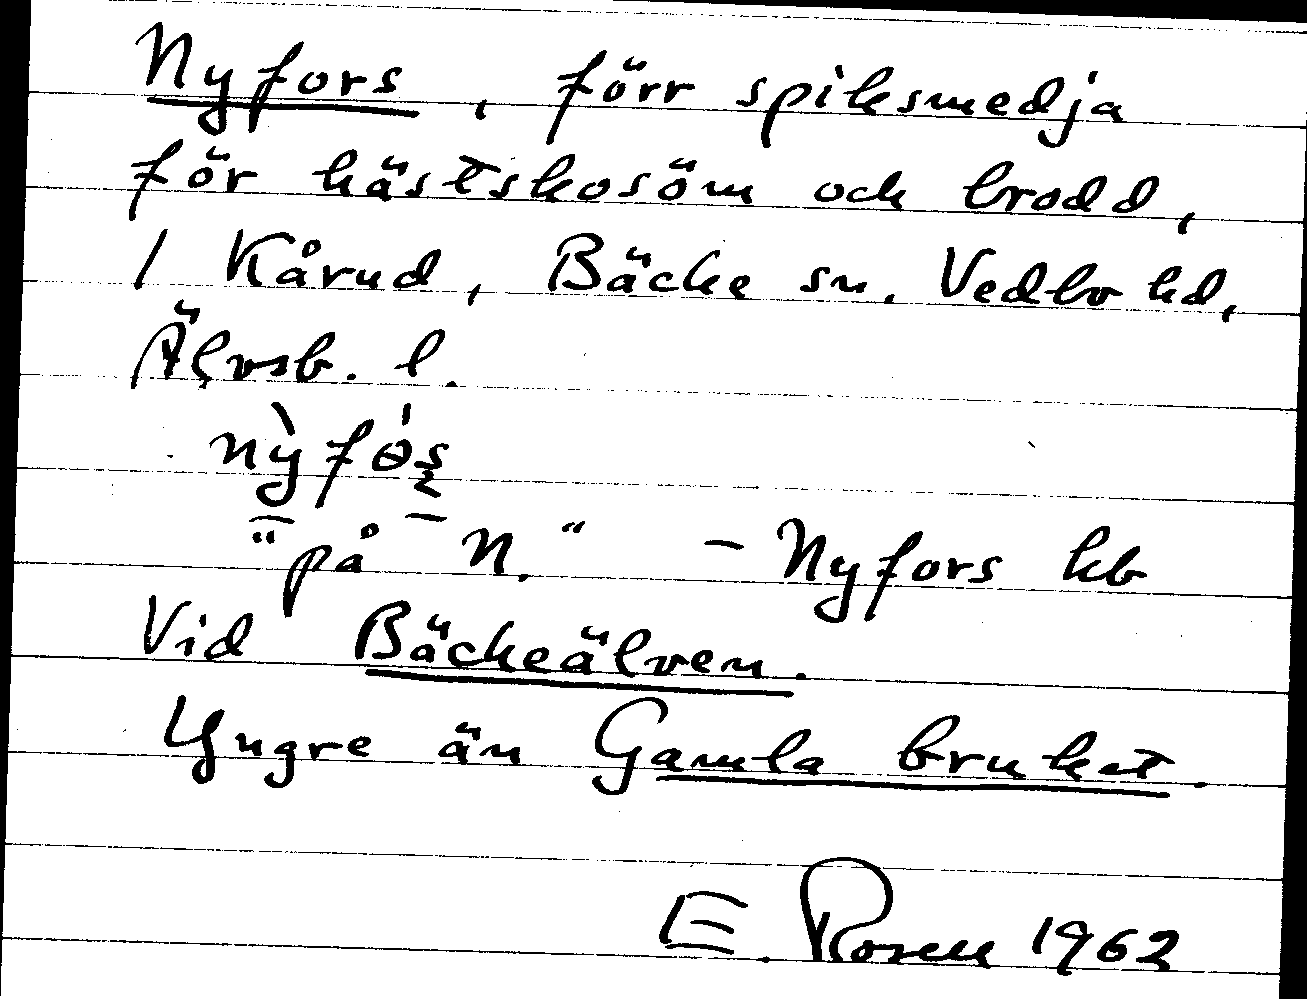 Nyfors, förr spiksmedja
för hästskosöm och brodd,
/ Kårud, Bäcke sn. Vedbo hd,
Älvsb. l.
"på N." – Nyfors kb
Vid Bäckeälven.
Yngre än Gamla bruket.
E. Rosell 1962